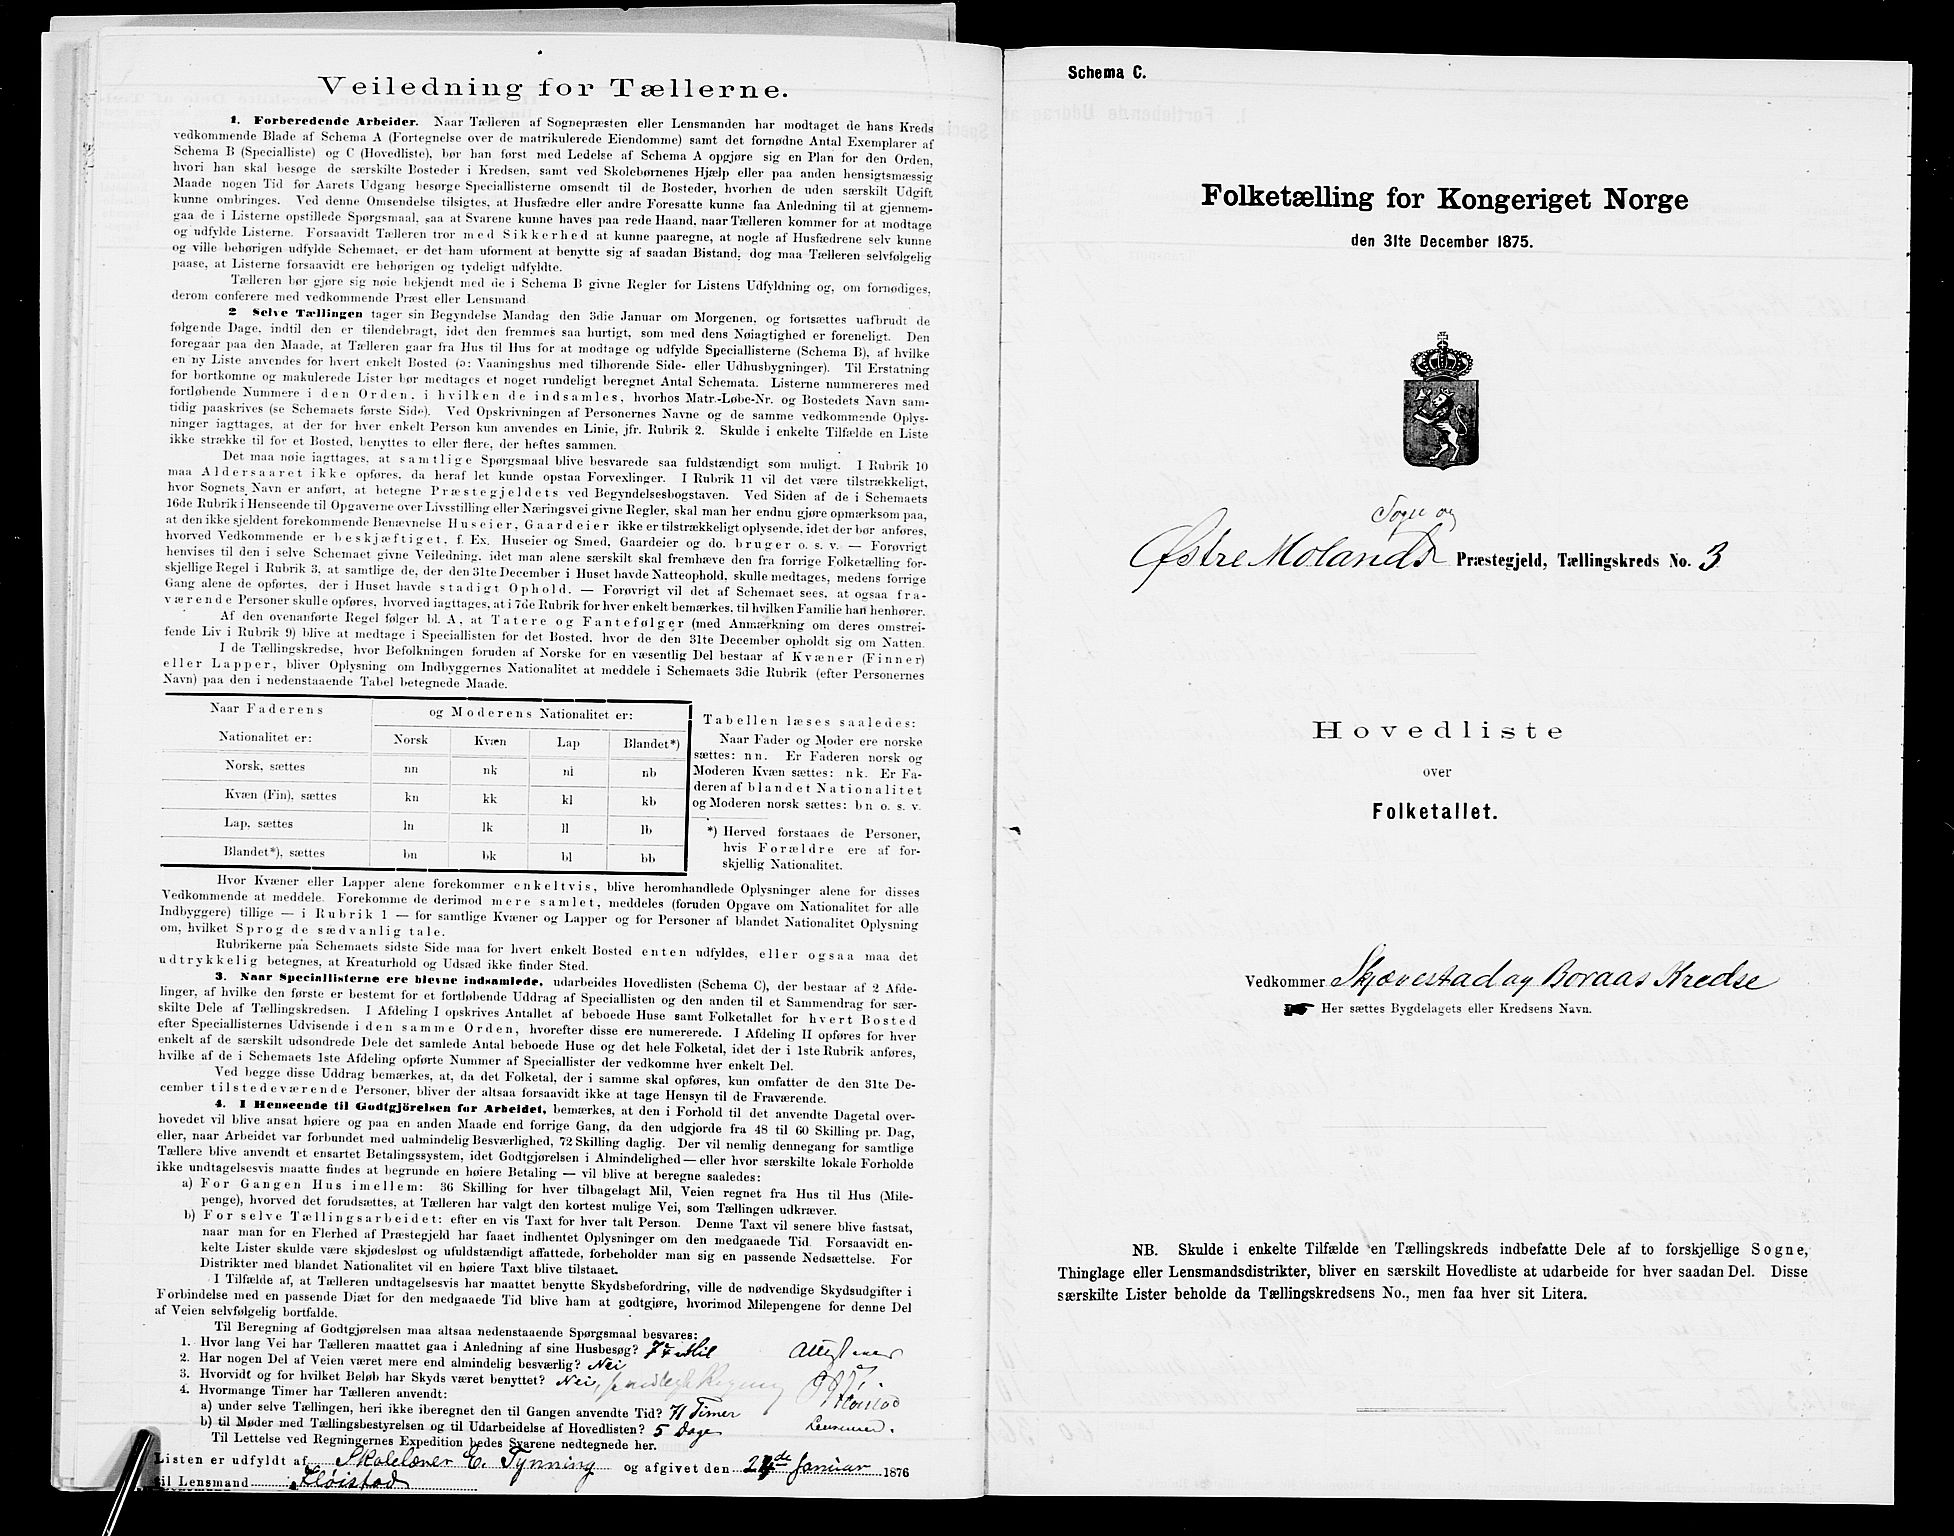 Veiledning for Tællerne.
1. Forberedende Arbeider. Naar Tælleren af Sognepræsten eller Lensmanden har modtaget de hans Kreds
vedkommende Blade af Schema A (Fortegnelse over de matrikulerede Eiendomme) samt det fornødne Antal Exemplarer af
Schema B (Specialliste) og C (Hovedliste), bør han først med Ledelse af Schema A opgjøre sig en Plan for den Orden,
hvori han skal besøge de særskilte Bosteder i Kredsen, samt ved Skolebørnenes Hjælp eller paa anden hensigtsmæssig
Maade nogen Tid før Aarets Udgang besørge Speciallisterne omsendt til de Bosteder, hvorhen de uden særskilt Udgift
kunne ombringes. Ved denne Omsendelse tilsigtes, at Husfædre eller andre Foresatte kunne faa Anledning til at gjennem-
gaa de i Listerne opstillede Spørgsmaal, saa at Svarene kunne haves paa rede Haand, naar Tælleren kommer for at modtage
og udfylde Listerne. Forsaavidt Tælleren tror med Sikkerhed at kunne paaregne, at nogle af Husfædrene selv kunne
og ville behørigen udfylde Schemaet, er det ham uforment at benytte sig af saadan Bistand, dog maa Tælleren selvfølgelig
paase, at Listerne forsaavidt ere behørigen og tydeligt udfyldte.
Tælleren bør gjøre sig nøie bekjendt med de i Schema B givne Regler for Listens Udfyldning og, om fornødiges,
derom conferere med vedkommende Præst eller Lensmand
2 Selve Tællingen tager sin Begyndelse Mandag den 3die Januar om Morgenen, og fortsættes uafbrudt de
følgende Dage, indtil den er tilendebragt, idet den fremmes saa hurtigt, som med dens Nøiagtighed er foreneligt. Den
foregaar paa den Maade, at Tælleren gaar fra Hus til Hus for at modtage og udfylde Speciallisterne (Schema B), af hvilke
en ny Liste anvendes for hvert enkelt Bosted (ɔ: Vaaningshus med tilhørende Side- eller Udhusbygninger). Til Erstatning
for bortkomne og makulerede Lister bør medtages et noget rundeligt beregnet Antal Schemata. Listerne nummereres med
fortløbende Nummere i den Orden, i hvilken de indsamles, hvorhos Matr.-Løbe-Nr. og Bostedets Navn sam-
tidig paaskrives (se Schemaets første Side). Ved Opskrivningen af Personernes Navne og de samme vedkommende Oplys-
ninger iagttages, at der for hver enkelt Person kun anvendes en Linie, jfr. Rubrik 2. Skulde i enkelte Tilfælde en Liste
ikke strække til for et Bosted, benyttes to eller flere, der heftes sammen.
Det maa nøie iagttages, at samtlige Spørgsmaal blive besvarede saa fuldstændigt som muligt. I Rubrik 10
maa Aldersaaret ikke opføres, da heraf let kunde opstaa Forvexlinger. I Rubrik 11 vil det være tilstrækkeligt,
hvor Sognets Navn er anført, at betegne Præstegjeldets ved Begyndelsesbogstaven. Ved Siden af de i Schemaets
16de Rubrik i Henseende til Opgaverne over Livsstilling eller Næringsvei givne Regler, skal man her endnu gjøre opmærksom paa,
at den ikke sjeldent forekommende Benævnelse Huseier, Gaardeier ikke er tilstrækkeligt oplysende, idet der bør anføres,
hvorved Vedkommende er beskjæftiget, f. Ex. Huseier og Smed, Gaardeier og do. bruger o. s. v. — Forøvrigt
henvises til den i selve Schemaet givne Veiledning, idet man alene særskilt skal fremhæve den fra forrige Folketælling for-
skjellige Regel i Rubrik 3, at samtlige de, der den 31te December i Huset havde Natteophold, skulle medtages, medens forrige
Gang alene de opførtes, der i Huset havde stadigt Ophold. — Forøvrigt vil det af Schemaet sees, at ogsaa fra-
værende Personer skulle opføres, hvorved iagttages, at i 7de Rubrik for hver enkelt bemærkes, til hvilken Familie han henhører.
Af den ovenanførte Regel følger bl. A., at Tatere og Fantefølger (med Anmærkning om deres omstrei-
fende Liv i Rubrik 9) blive at medtage i Speciallisten for det Bosted, hvor de den 31te December opholdt sig om Natten.
I de Tællingskredse, hvor Befolkningen foruden af Norske for en væsentlig Del bestaar af Kvæner (Finner)
eller Lapper, bliver Oplysning om Indbyggernes Nationalitet at meddele i Schemaets 3die Rubrik (efter Personernes
Navn) paa den i nedenstaaende Tabel betegnede Maade.
Naar Faderens og Moderens Nationalitet er:
Nationalitet er: Norsk Kvæn Lap Blandet*)
Norsk, sættes nn nk nl nb
Kvæn (Fin), sættes kn kk kl kb
Lap, sættes ln lk ll lb
Blandet*), sættes bn bk bl bb
Tabellen læses saaledes:
Naar Fader og Moder ere norske
sættes: nn. Er Faderen norsk og
Moderen Kvæn sættes: nk. Er Fa-
deren af blandet Nationalitet
og Moderen norsk sættes: bn o. s. v.
*) Herved forstaaes de Personer,
hvis Forældre ere af for-
skjellig Nationalitet.
Hvor Kvæner eller Lapper alene forekommer enkeltvis, blive heromhandlede Oplysninger alene for disses
Vedkommende at meddele. Forekomme de derimod mere samlet, meddeles (foruden Opgave om Nationalitet for alle
Indbyggere) tillige — i Rubrik 1 — for samtlige Kvæner og Lapper og for Personer af blandet Nationalitet Oplysning
om, hvilket Sprog de sædvanlig tale.
Rubrikerne paa Schemaets sidste Side maa for hvert enkelt Bosted enten udfyldes, eller ogsaa maa det
udtrykkelig betegnes, at Kreaturhold og Udsæd ikke finder Sted.
3. Naar Speciallisterne ere blevne indsamlede, udarbeides Hovedlisten (Schema C), der bestaar af 2 Afde-
linger, af hvilke den første er bestemt for et fortløbende Uddrag af Speciallisten og den anden til et Sammendrag for sær-
skilte Dele af Tællingskredsen. I Afdeling I opskrives Antallet af beboede Huse samt Folketallet for hvert Bosted
efter Speciallisternes Udvisende i den samme Orden, hvorefter disse ere numererede. I Afdeling II opføres for hver
enkelt af de særskilt udsondrede Dele det samlede Antal beboede Huse og det hele Folketal, idet der i 1ste Rubrik anføres,
hvilke af de i Schemaets 1ste Afdeling opførte Nummer af Speciallister der vedkomme hver enkelt Del.
Ved begge disse Uddrag bemærkes, at, da det Folketal, der i samme skal opføres, kun omfatter de den 31te De-
cember tilstedeværende Personer, bliver der altsaa forsaavidt ikke at tage Hensyn til de Fraværende.
4. I Henseende til Godtgjörelsen for Arbeidet, bemærkes, at den i Forhold til det anvendte Dagetal over-
hovedet vil blive ansat høiere og paa en anden Maade end forrige Gang, da den udgjorde fra 48 til 60 Skilling pr. Dag,
eller, naar Arbeidet var forbundet med ualmindelig Besværlighed, 72 Skilling daglig. Der vil nemlig dennegang for samtlige
Tællere blive anvendt et ensartet Betalingssystem, idet Godtgjørelsen i Almindelighed — eller hvor særskilte lokale Forholde
ikke undtagelsesvis maatte findes at begrunde en høiere Betaling — vil blive at beregne saaledes:
a) For Gangen Hus imellem: 36 Skilling for hver tilbagelagt Mil, Veien regnet fra Hus til Hus (Mile-
penge), hvorved det forudsættes, at Tælleren har valgt den kortest mulige Vei, som Tællingen udkræver.
b) For selve Tællingsarbeidet: efter en vis Taxt for hver talt Person. Denne Taxt vil senere blive fastsat,
naar man for en Flerhed af Præstegjeld har faaet indhentet Oplysninger om den medgaaede Tid. Forsaavidt en-
kelte Lister skulde være skjødesløst og ufuldstændigt affattede, forbeholder man sig en passende Nedsættelse. For
Distrikter med blandet Nationalitet vil en høiere Taxt blive tilstaaet.
I Tilfælde af, at Tælleren undtagelsesvis har maattet benytte Skydsbefordring, ville de nødvendige Skydsudgifter i
Forbindelse med en passende Diæt for den medgaaede Tid blive ham at godtgjøre, hvorimod Milepengene for denne Del
af Veien selvfølgelig bortfalde.
Til Beregning af Godtgjørelsen maa altsaa nedenstaaende Spørgsmaal besvares:
1. Hvor lang Vei har Tælleren maattet gaa i Anledning af sine Husbesøg? Mil
2. Har nogen Del af Veien været mere end almindelig besværlig? Nei
3. Hvorvidt og for hvilket Beløb har Skyds været benyttet? Nei,
4. Hvormange Timer har Tælleren anvendt:
a) under selve Tællingen, heri ikke iberegnet den til Gangen anvendte Tid? 71 Timer
b) til Møder med Tællingsbestyrelsen og til Udarbeidelse af Hovedlisten? 5 Dage
Til Lettelse ved Regningernes Expedition bedes Svarene nedtegnede her.
Attesteres
Fløistad
Lensmand.
Listen er udfyldt af Skolelærer E. Tynning og afgivet den 24de Januar 1876
til Lensmand Fløistad
Schema C.
Folketælling for Kongeriget Norge
den 31te December 1875.
Sogn og
Østre Molands Præstegjeld, Tællingskreds No. 3
Hovedliste
over
Folketallet.
Vedkommer Skjævestad og Boraas Kredse
Her sættes Bygdelagets eller Kredsens Navn.
NB. Skulde i enkelte Tilfælde en Tællingskreds indbefatte Dele af to forskjellige Sogne,
Thinglage eller Lensmandsdistrikter, bliver en særskilt Hovedliste at udarbeide for hver saadan Del. Disse
særskilte Lister beholde da Tællingskredsens No., men faa hver sit Litera.